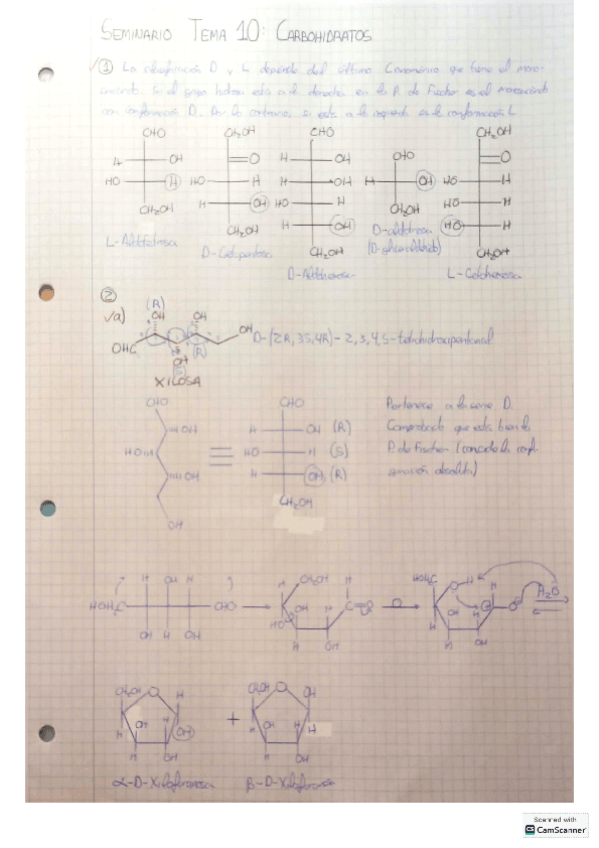 SEMINARIO TEMA 10: CARBOHIDRATOS
① La conformación D y L depende del último C anomérico que tiene el mono-
sacárido. Si el grupo hidroxi está a la derecha en la P. de Fischer es el monosacárido
con conformación D. Por lo contrario, si está a la izquierda es la conformación L.
CHO CH₂OH CHO CH₂OH
H OH O H OH CHO O
HO H HO H H OH H OH HO H
CH₂OH H OH H OH CH₂OH HO H
L-Aldotetrosa CH₂OH H OH D-aldotriosa HO H
D-Cetopentosa CH₂OH (D-gliceraldehído) CH₂OH
D-Aldohexosa L-Cetohexosa
②
a) (R)
OH OH
OHC OH D-(2R, 3S, 4R)-2,3,4,5-tetrahidroxipentanal
(R)
OH
(S)
XILOSA
CHO CHO Pertenece a la serie D.
OH H OH (R) Comprobado que está bien la
HO HO H (S) P. de Fischer (coincide la conf-
OH H OH (R)
CH₂OH
OH
H OH H CH₂OH H HOH₂C O H
HOH₂C CHO OH C=O OH H₂O
OH H OH HO H OH H OH
CH₂OH O H CH₂OH O OH
H OH OH + H OH H H
H OH H OH
α-D-Xilofuranosa β-D-Xilofuranosa
Scanned with
CS CamScanner